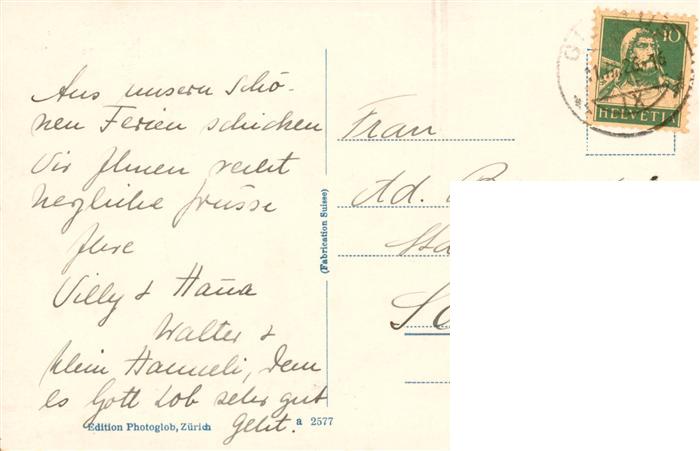 Aus unsern schö-
nen Ferien schicken
Wir Ihnen recht
herzliche Grüsse
Ihre
Willy & Hanna
Walter &
klein Hanneli, dem
es Gott Lob sehr gut
geht.
Edition Photoglob, Zürich a 2577
(Fabrication Suisse)
10
HELVETIA
Frau
Ad.